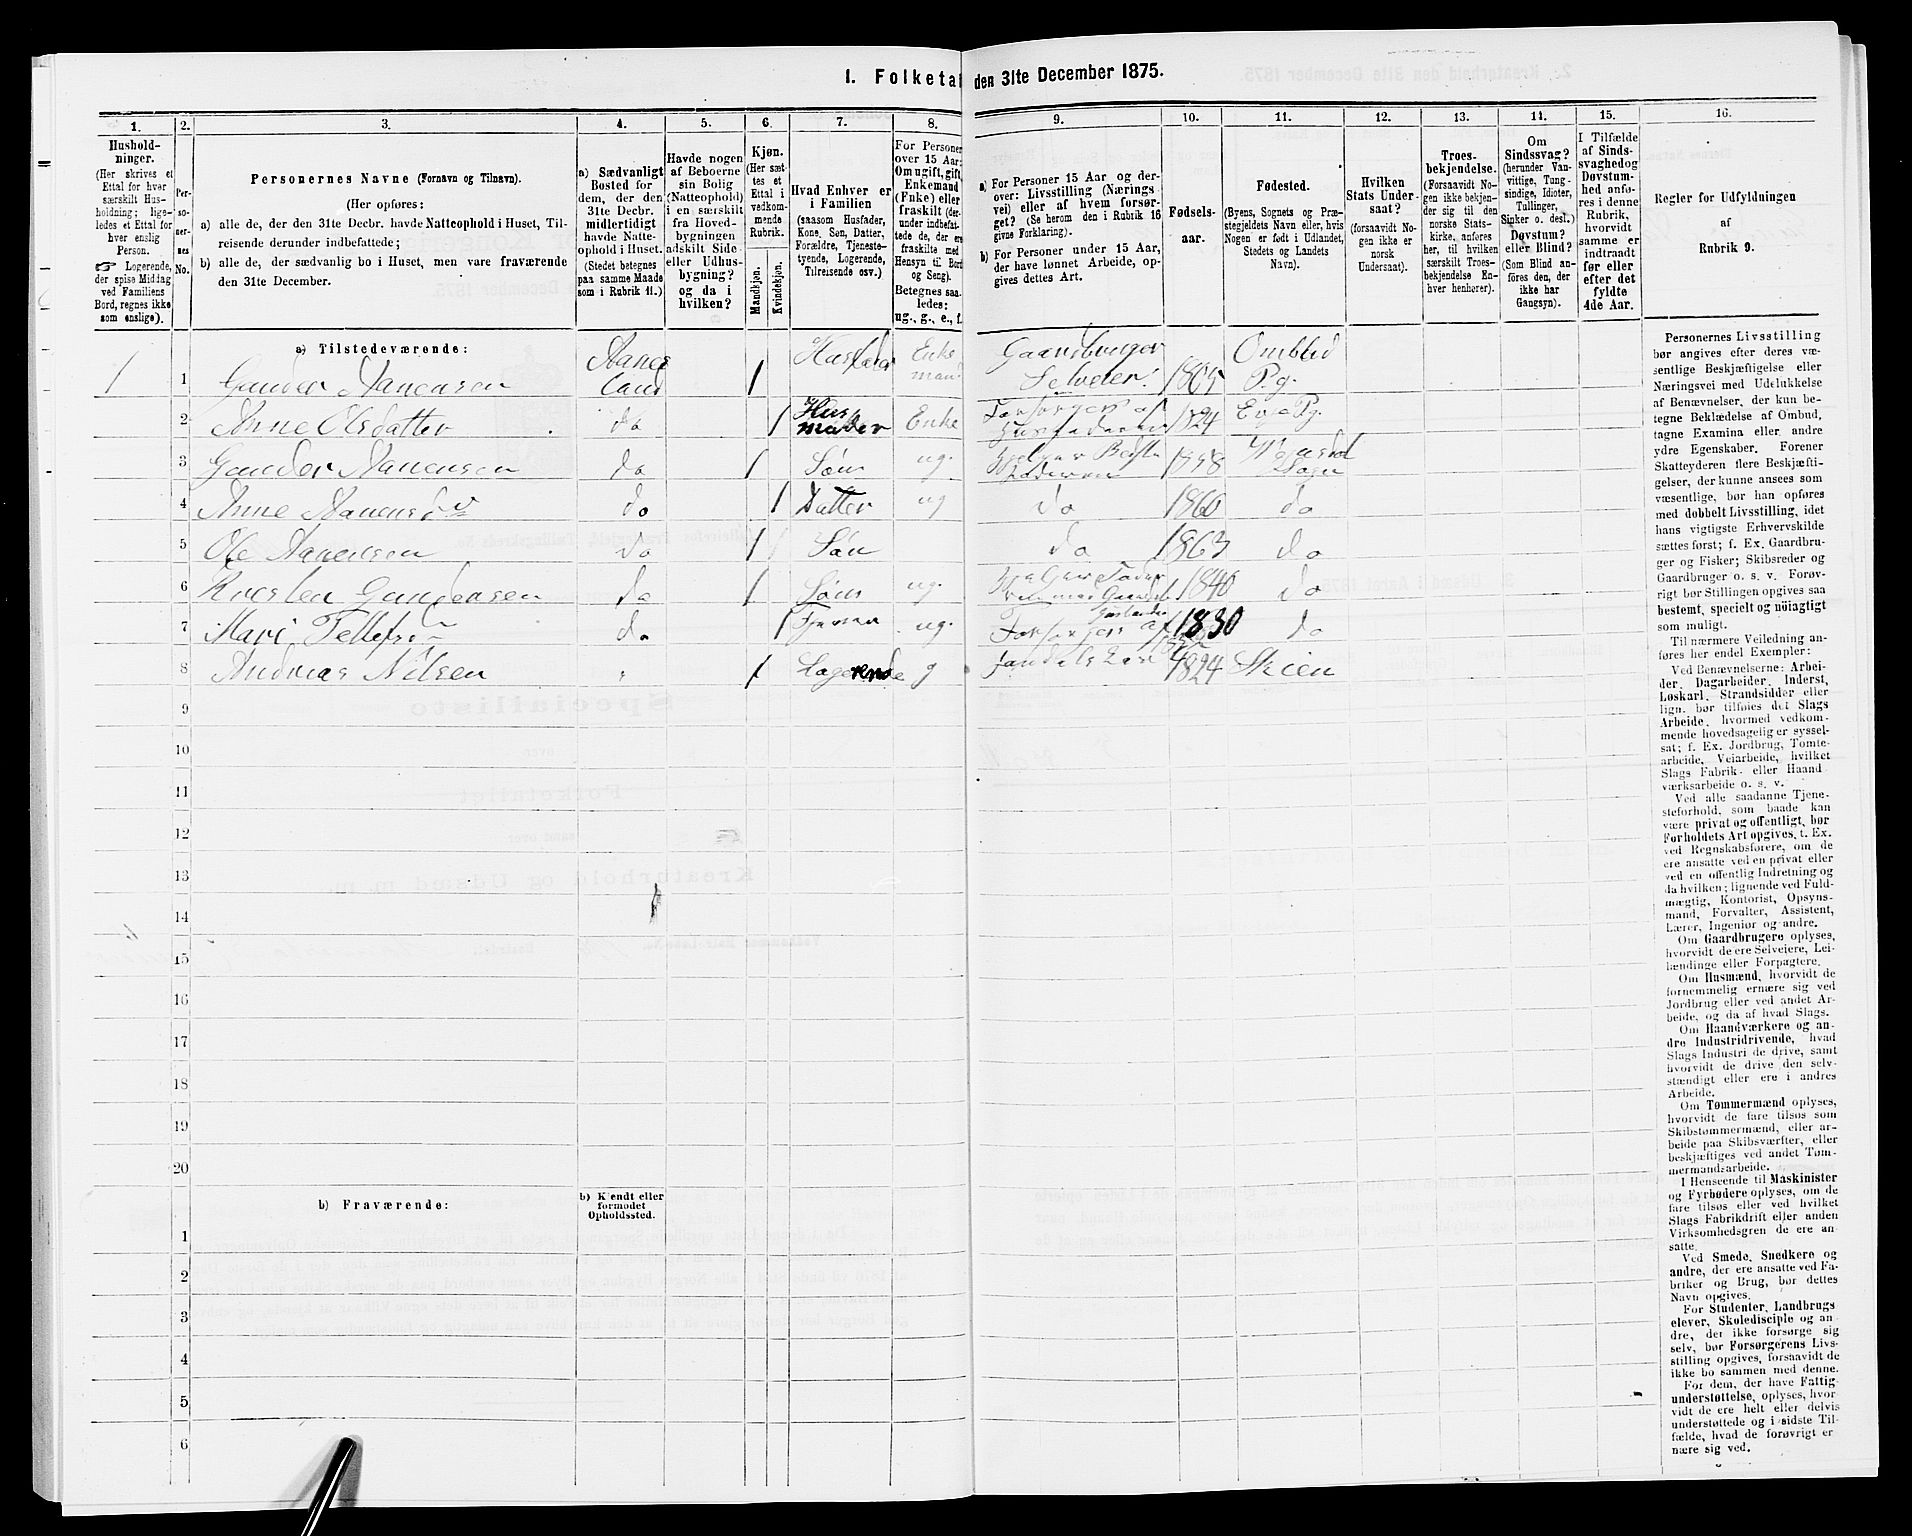 1. Folketal den 31te December 1875.
1. 2. 3. 4. 5. 6. 7. 8. 9. 10. 11. 12. 13. 14. 15. 16.
Hushold-
ninger.
(Her skrives et
Ettal for hver
særskilt Hus-
holdning; lige-
ledes et Ettal for
hver enslig
Person.
☞ Logerende,
der spise Middag
ved Familiens
Bord, regnes ikke
som enslige).
Per-
so-
ner-
nes
No.
Personernes Navne (Fornavn og Tilnavn).
(Her opføres:
a) alle de, der den 31te Decbr. havde Natteophold i Huset, Til-
reisende derunder indbefattede;
b) alle de, der sædvanlig bo i Huset, men vare fraværende
den 31te December.
a) Sædvanligt
Bosted for
dem, der den
31te Decbr.
midlertidigt
havde Natte-
ophold i Huset.
(Stedet betegnes
paa samme Maade
som i Rubrik 11.)
Havde nogen
af Beboerne
sin Bolig
(Natteophold)
i en særskilt
fra Hoved-
bygningen
adskilt Side-
eller Udhus-
bygning?
og da i
hvilken?
Kjøn.
(Her sæt-
tes et
Ettal i
vedkom-
mende
Rubrik.
Mandkjøn.
Kvindekjøn.
Hvad Enhver er
i Familien
(saasom Husfader,
Kone, Søn, Datter,
Forældre, Tjeneste-
tyende, Logerende,
Tilreisende osv.)
For Personer
over 15 Aar:
Om ugift, gift,
Enkemand
(Enke) eller
fraskilt (der-
under indbefat-
tede de, der ere
fraskilte med
Hensyn til Bord
og Seng).
Betegnes saa-
ledes:
ug., g., e., f.
a) For Personer 15 Aar og der-
over: Livsstilling (Nærings
vei) eller af hvem forsør-
get? (Se herom den i Rubrik 16
givne Forklaring).
b) For Personer under 15 Aar,
der have lønnet Arbeide, op-
gives dettes Art.
Fødsels-
aar.
Fødested.
(Byens, Sognets og Præ-
stegjeldets Navn eller, hvis
Nogen er født i Udlandet,
Stedets og Landets
Navn).
Hvilken
Stats Under-
saat?
(forsaavidt No-
gen ikke er
norsk
Undersaat).
Troes-
bekjendelse.
(Forsaavidt No-
gen ikke bekjen-
der sig til den
norske Stats-
kirke, anføres
her, til hvilken
særskilt Troes-
bekjendelse En-
hver henhører).
Om
Sindssvag?
(herunder Van-
vittige, Tung-
sindige, Idioter,
Tullinger,
Sinker o. desl.)
Døvstum?
eller Blind?
(Som Blind an-
føres den, der
ikke har
Gangsyn).
I Tilfælde
af Sinds-
svaghed og
Døvstum-
hed anfø-
res i denne
Rubrik,
hvorvidt
samme er
indtraadt
før eller
efter det
fyldte
4de Aar.
Regler for Udfyldningen
af
Rubrik 9.
a) Tilstedeværende:
1 1 Gunder Aanensen Aanes land 1 Husfader Enke mand Gaardbruger Selveier. 1805 Omblid P.g.
2 Anne Olsdatter do 1 Hus moder Enke 1824 Evje P.g.
3 Gunder Aanensen do 1 Søn ug. 1858 Sogn
4 Anne Aanens do 1 Datter ug do 1860 do
5 Ole Aanensen do 1 Søn do 1863 do
6 Gundersen do 1 Søn ug. 1840 do
7 Mari Tellefs do 1 ug. 1830 do
8 Andreas Nilsen " 1 Logerende g 1824 Skien
9
10
11
12
13
14
15
16
17
18
19
20
b) Fraværende:
b) Kjendt eller
formodet
Opholdssted.
1
2
3
4
5
6
Personernes Livsstilling
bør angives efter deres væ-
sentlige Beskjæftigelse eller
Næringsvei med Udelukkelse
af Benævnelser, der kun be-
tegne Beklædelse af Ombud,
tagne Examina eller andre
ydre Egenskaber. Forener
Skatteyderen flere Beskjæfti-
gelser, der kunne ansees som
væsentlige, bør han opføres
med dobbelt Livsstilling, idet
hans vigtigste Erhvervskilde
sættes først; f. Ex. Gaardbru-
ger og Fisker; Skibsreder og
Gaardbruger o. s. v. Forøv-
rigt bør Stillingen opgives saa
bestemt, specielt og nøiagtigt
som muligt.
Til nærmere Veiledning an-
føres her endel Exempler:
Ved Benævnelserne: Arbei-
der, Dagarbeider, Inderst,
Løskarl, Strandsidder eller
lign. bør tilføies det Slags
Arbeide, hvormed vedkom-
mende hovedsagelig er syssel-
sat; f. Ex. Jordbrug, Tomte-
arbeide, Veiarbeide, hvilket
Slags Fabrik- eller Haand
værksarbeide o. s. v.
Ved alle saadanne Tjene-
steforhold, som baade kan
være privat og offentligt, bør
Forholdets Art opgives, t. Ex.
ved Regnskabsførere, om de
ere ansatte ved en privat eller
ved en offentlig Indretning og
da hvilken; lignende ved Fuld-
mægtig, Kontorist, Opsyns-
mand, Forvalter, Assistent,
Lærer, Ingeniør og andre.
Om Gaardbrugere oplyses,
hvorvidt de ere Selveiere, Lei-
lændinge eller Forpagtere.
Om Husmænd, hvorvidt de
fornemmelig ernære sig ved
Jordbrug eller ved andet Ar-
beide, og da af hvad Slags.
Om Haandværkere og an-
dre Industridrivende, hvad
Slags Industri de drive, samt
hvorvidt de drive den selv-
stændigt eller ere i andres
Arbeide.
Om Tømmermænd oplyses,
hvorvidt de fare tilsøs som
Skibstømmermænd, eller ar-
beide paa Skibsværfter, eller
beskjæftiges ved andet Tøm-
mermandsarbeide.
I Henseende til Maskinister
og Fyrbødere oplyses, om de
fare tilsøs eller ved hvilket
Slags Fabrikdrift eller anden
Virksomhedsgren de ere an-
satte.
Ved Smede, Snedkere og
andre, der ere ansatte ved Fa-
briker og Brug, bør dettes
Navn opgives.
For Studenter, Landbrugs
elever, Skoledisciple og an-
dre, der ikke forsørge sig
selv, bør Forsørgerens Livs-
stilling opgives, forsaavidt de
ikke bo sammen med denne.
For dem, der have Fattig-
understøttelse, oplyses, hvor-
vidt de ere helt eller delvis
understøttede og i sidste Til-
fælde, hvad de forøvrigt er
nære sig ved.